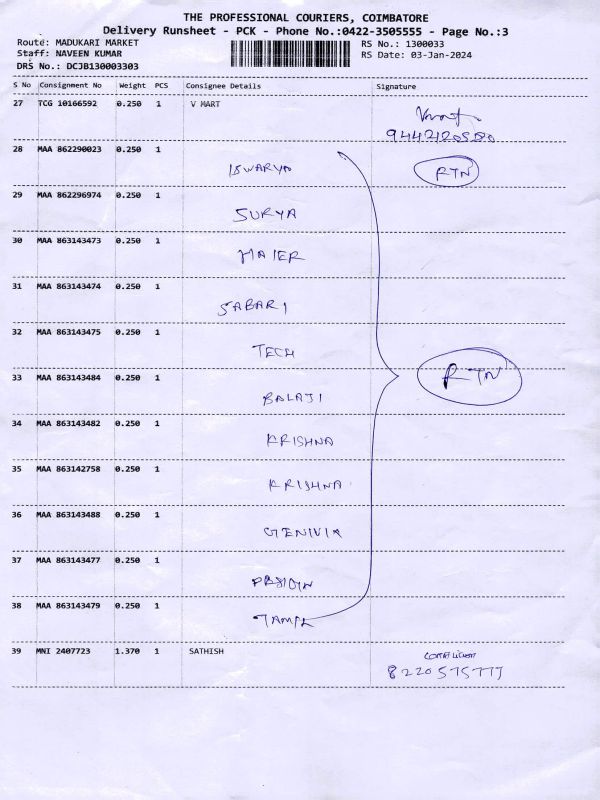 THE PROFESSIONAL COURIERS, COIMBATORE
Delivery Runsheet - PCK - Phone No.:0422-3505555 - Page No.:3
Route: MADUKARI MARKET RS No.: 1300033
Staff: NAVEEN KUMAR RS Date: 03-Jan-2024
DRS No.: DCJB130003303
S No Consignment No Weight PCS Consignee Details Signature
27 TCG 10166592 0.250 1 V MART
9442120580
28 MAA 862290023 0.250 1
ISWARYA RTN
29 MAA 862296974 0.250 1
SURYA
30 MAA 863143473 0.250 1
HAIER
31 MAA 863143474 0.250 1
SABARI
32 MAA 863143475 0.250 1
TECH
33 MAA 863143484 0.250 1 RTN
BALAJI
34 MAA 863143482 0.250 1
KRISHNA
35 MAA 863142758 0.250 1
KRISHNA
36 MAA 863143488 0.250 1
GENIVIA
37 MAA 863143477 0.250 1
38 MAA 863143479 0.250 1
TAMIL
39 MNI 2407723 1.370 1 SATHISH
8220575777